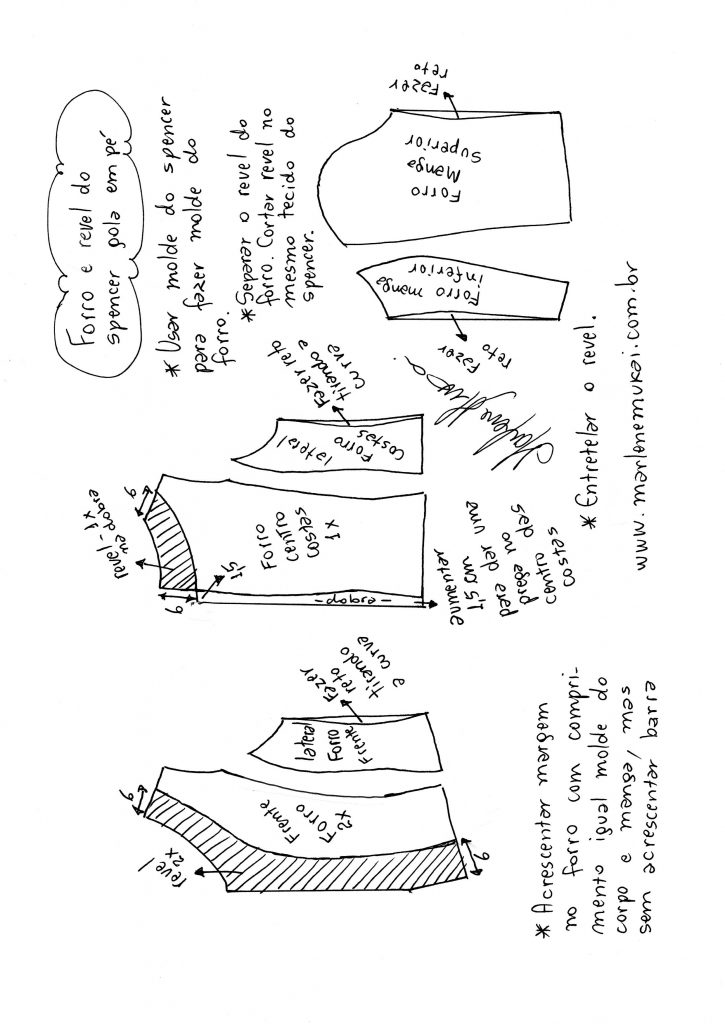 Forro e revel do
spencer gola em pé
* Usar molde do spencer
para fazer molde do
forro.
* Separar o revel do
forro. Cortar revel no
mesmo tecido do
spencer.
revel
2x
6
Frente
Forro
2x
6
lateral
Forro
Frente
Fazer
reto
tirando
a curva
revel - 1x
na dobra
6
6
1,5
Forro
Centro
Costas
1x
- dobra -
aumentar
1,5 cm
para dar uma
prega no
centro das
costas
Forro
Costas
lateral
Fazer reto
tirando a
curva
Forro manga
inferior
Fazer
reto
Forro
Manga
Superior
Fazer
reto
* Acrescentar margem
no forro com compri-
mento igual molde do
corpo e manga, mas
sem acrescentar barra
* Entretelar o revel.
www.marlenemukai.com.br